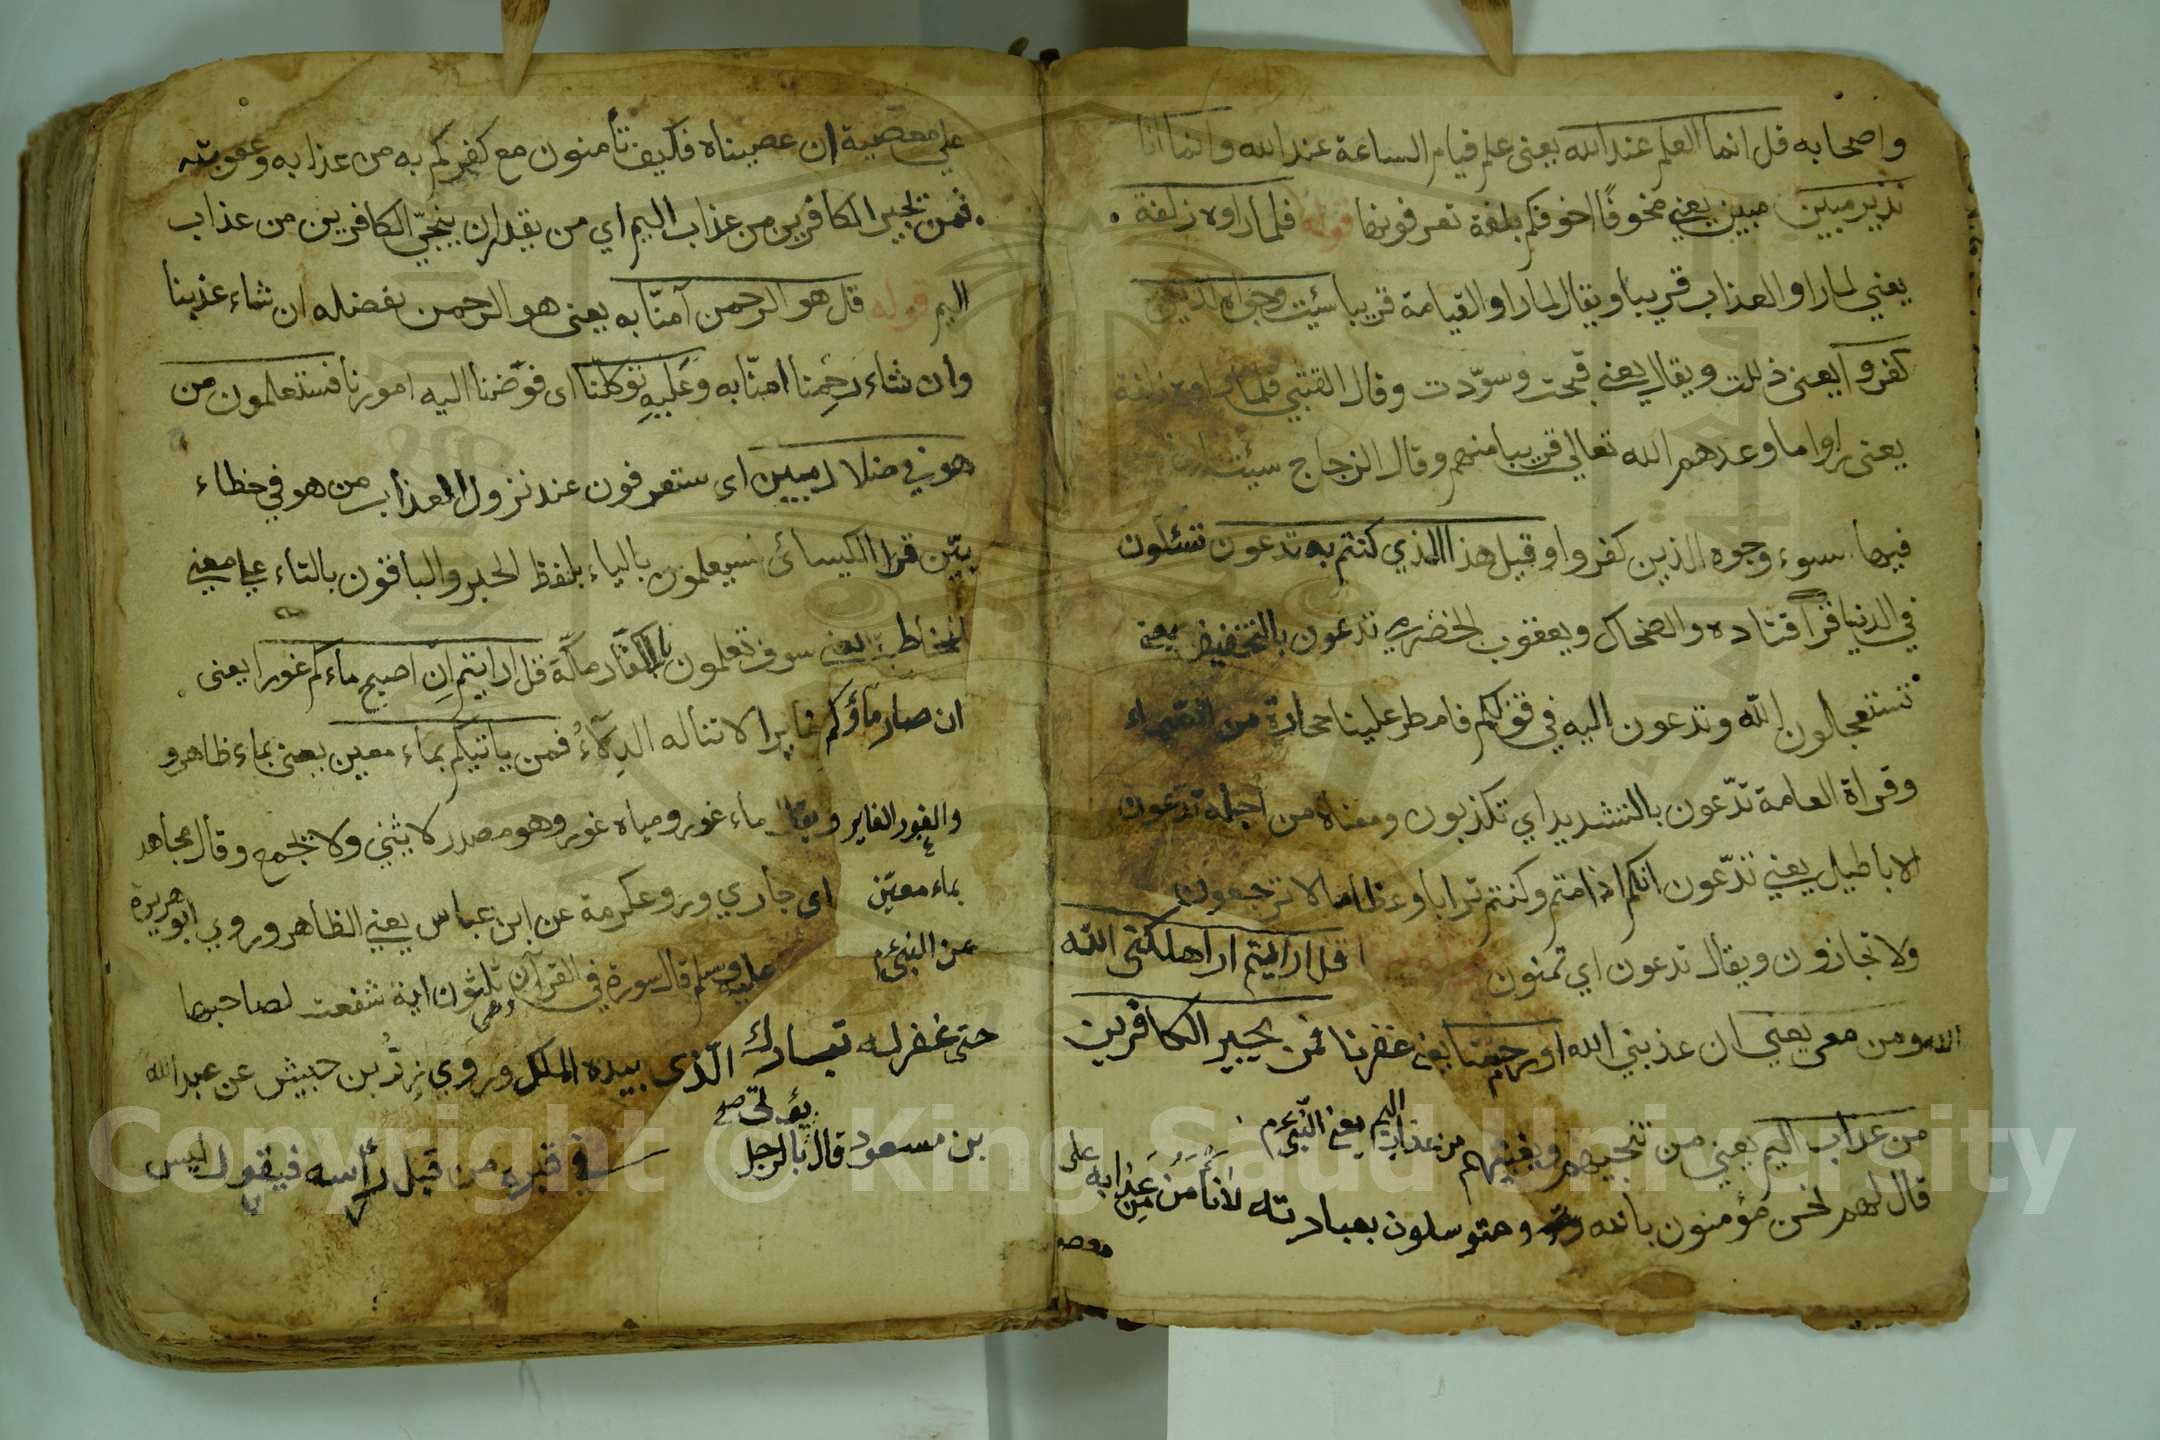 واصحابه قل انما العلم عند الله يعنى علم قيام الساعة عند الله وانما انا
نذير مبين مبين يعني مخوفًا اخوفكم بلغة تعرفونها قوله فلما راوه زلفة
يعني لما راو العذاب قريبا ويقال لما راو القيامة قريبا سئيت وجوه الذين
كفروا يعنى ذللت ويقال يعني قبحت وسوّدت وقال القتبي فلما راوه زلفة
يعنى راوا ما وعدهم الله تعالي قريبا منهم وقال الزجاج سيئت
فيها سوء وجوه الذين كفروا وقيل هذا الذي كنتم به تدعون تسئلون
في الدنيا قرأ قتاده والضحاك ويعقوب الحضرمي تدعون بالتخفيف يعني
تستعجلون الله وتدعون اليه في قولكم فامطر علينا حجارة من السماء
وقراة العامة تدّعون بالتشديد اي تكذبون ومعناه من اجله تدّعون
الاباطيل يعني تدّعون انكم اذا متم وكنتم ترابا وعظاما لا ترجعون
ولا تجازون ويقال تدعون اي تمنون قل ارايتم ان اهلكنى الله
الله ومن معى يعني ان عذبني الله اورحمنا يعني غفرنا فمن يجير الكافرين
من عذاب اليم يعني من ينجيهم ويغيثهم من عذاب اليم يعني النبي م
قال لهم نحن مؤمنون بالله ومتوسلون بعبادته لانأمن من عذابه على
معصو
علي معصية ان عصيناه فكيف تأمنون مع كفركم به من عذابه وعقوبته
فمن يجير الكافرين من عذاب اليم اي من يقدر ان ينجّي الكافرين من عذاب
اليم قوله قل هو الرحمن آمنّا به يعنى هو الرحمن بفضله ان شاء عذبنا
وان شاء رحمنا امنّا به وعليه توكلنا اى فوّضنا اليه امورنا فستعلمون من
هو في ضلال مبين اى ستعرفون عند نزول العذاب من هو في خطاء
بيّن قرا الكيسائ سيعلمون بالياء بلفظ الخبر والباقون بالتاء علي معني
المخاطب يعني سوف تعلمون يا كفّار مكّة قل ارايتم ان اصبح ماءكم غورا يعنى
ان صار ماؤكم غايرا لا تناله الدلاء فمن ياتيكم بماء معين يعنى بماء ظاهر و
والغور الغاير ويقال ماء غور ومياه غور وهو مصدر لا يثني ولا تجمع وقال مجاهد
بماء معيّن اى جاري وروعكرمة عن ابن عباس يعني الظاهر وروي ابو هريرة
عن النبي م عليه وسلم قال سورة في القرآن وهى ثلثون اية شفعت لصاحبها
حتى غفر له تبارك الّذى بيده الملك وروي زرّ بن حبيش عن عبد الله
بن مسعود قال يؤتى بالرجل في قبره من قبل رأسه فيقول ليس
Copyright © King Saud University